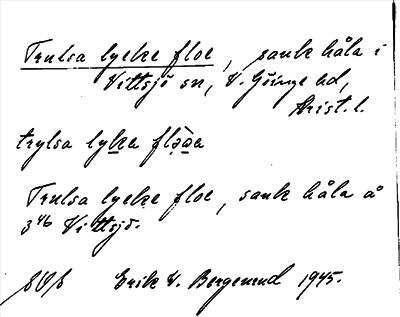 Trulsa lycke floe, sank håla i
Vittsjö sn, V. Göinge hd,
Krist. l.
trylsa lyka
Trulsa lycke floe, sank håla å
3⁴⁶ Vittsjö.
Erik V. Bergerund 1945.